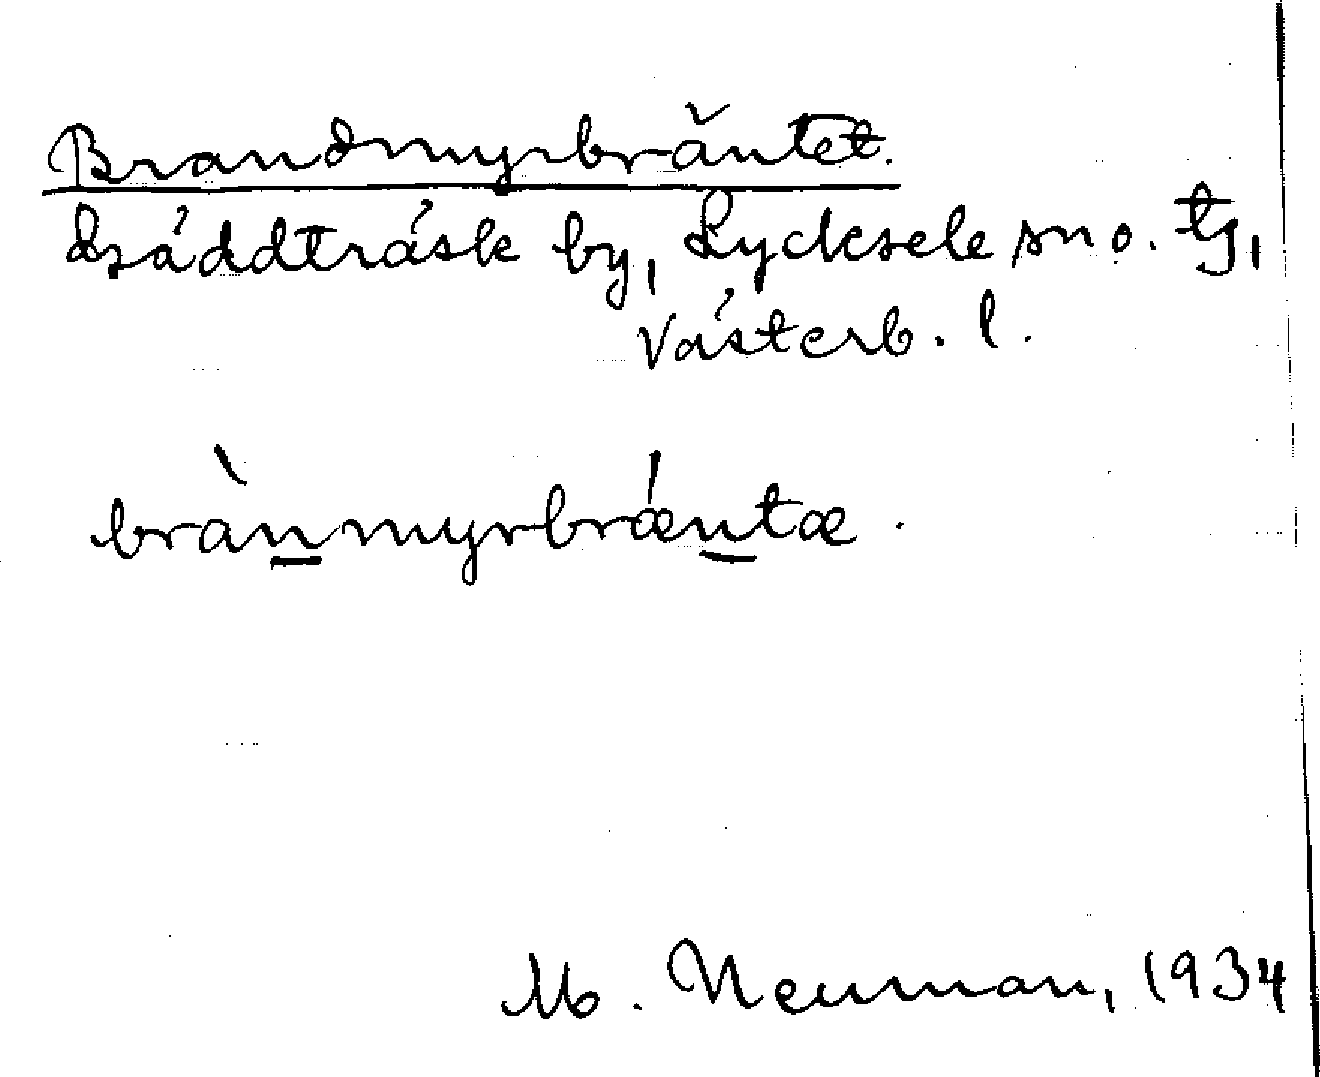 Brandmyrbräntet.
Bsäddträsk by, Lycksele sn o. tg,
Västerb. l.
brànmyrbrǽntæ.
M. Neuman, 1934